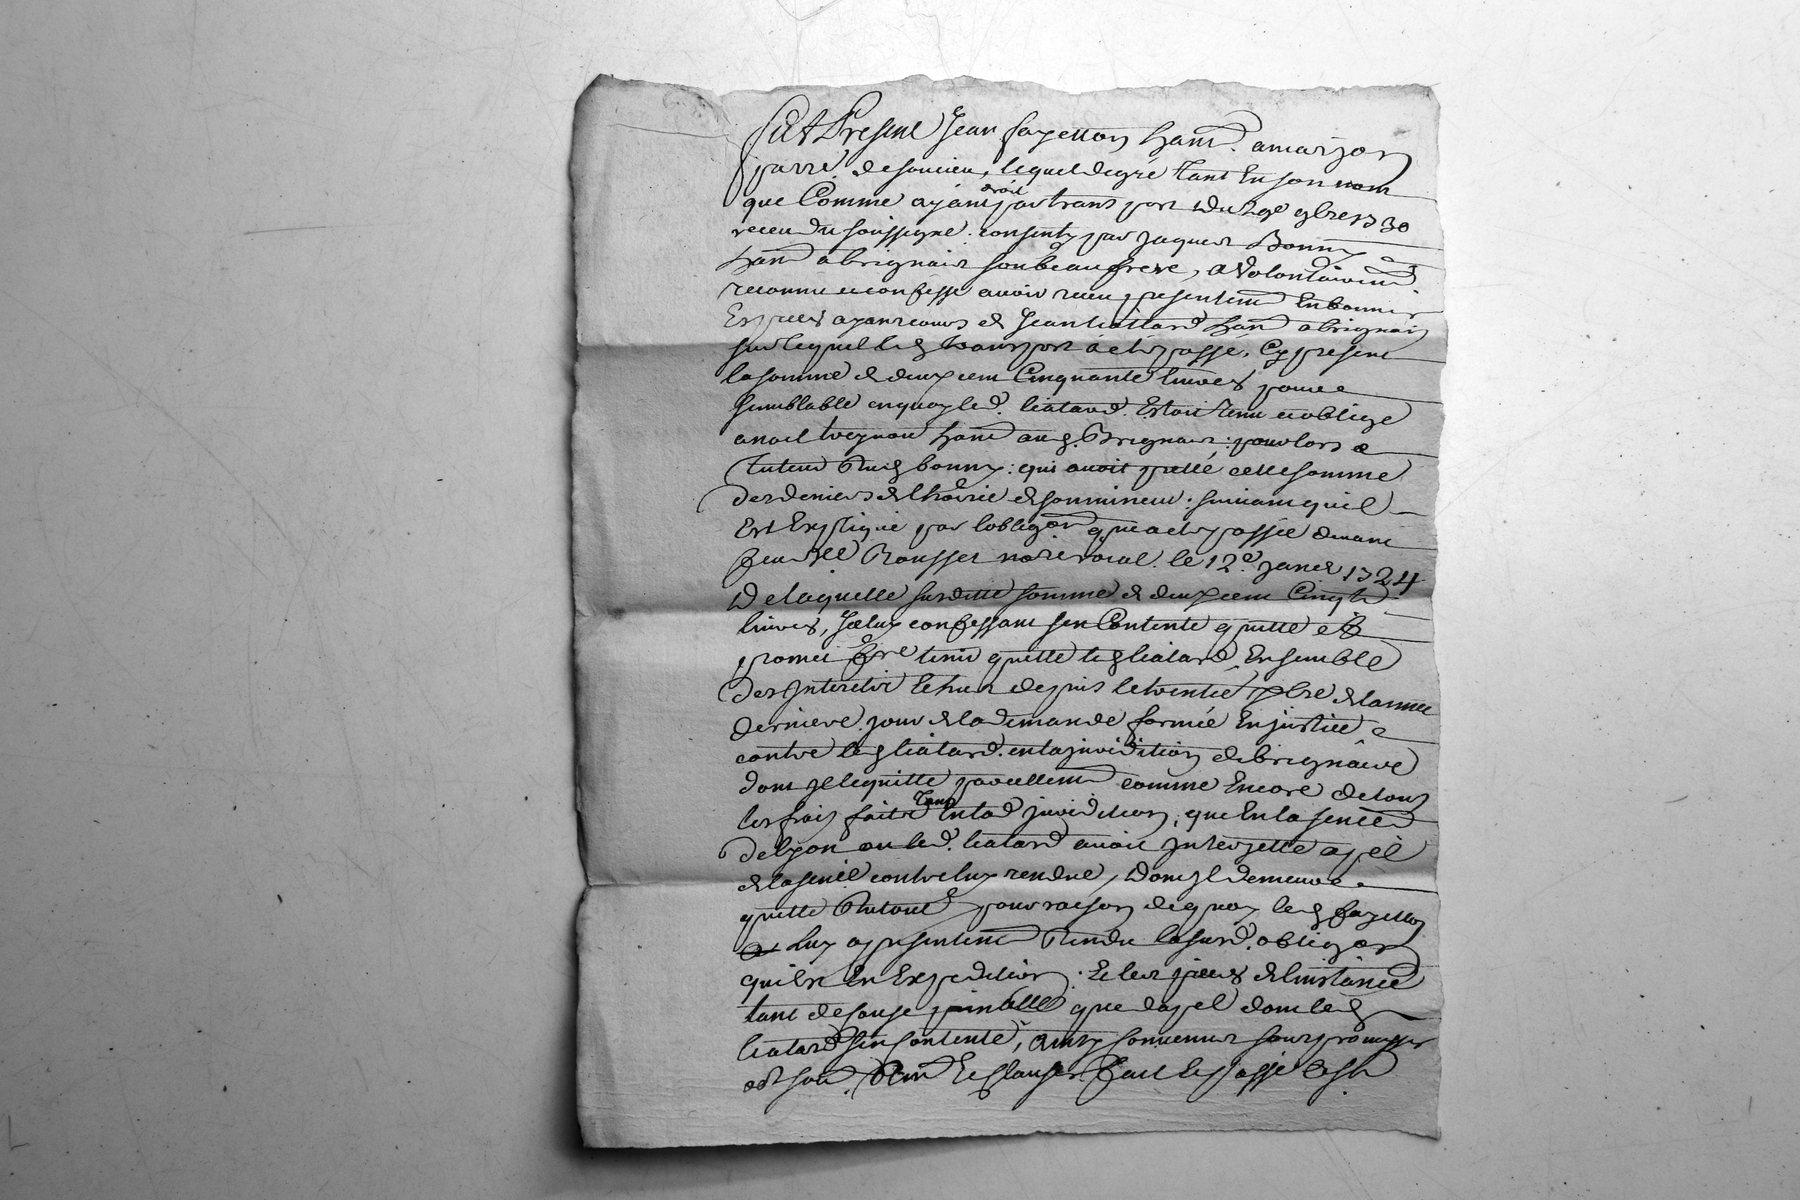 fut Present Jean fayetton hant. a marjon
parre. de soucieu, lequel de gré tant en son nom
que Comme ayant droit par transport du 29e 9bre 1730
receu du soussigne. consenty par Jaques Bonny
hant a brignais son beau frere, a volontairemt
reconnu et confesse avoir receu presentemt En bonnes
Especes ayant cours de Jean liattard hant a brignais
sur lequel led transport a eté passé, Cy present
la somme de deux cent Cinquante livres pour
semblable en quoy led. liatard. Estoit tenu et oblige
a noel hant aud. Brignais. pour lors
tuteur dud bonny: qui avoit presté cette somme
des deniers de lhoirie de son mineur. suivant quil
Est Expliqué par lobligaon qui a eté passée devant
feu Me Rousset no.re royal. le 12e. janer 1724
De laquelle susditte somme de deux cent Cinqte
livres, Iceluy confessant sen Contente quitte et
promet fre tenir quitte led liatard, Ensemble
des Interests echus depuis le trentie 9bre de lannee
derniere. jour de la demande formée En justice
contre led liatard. en la juridition de brignais
dont Il le quitte pareillemt comme Encore de tous
les frais faits tant En lad juridition, que En la senéé
de lyon ou led. liatard avoit Interjetté apel
de la senéé contre luy rendue, dont Il demeure
quitte du tout pour raison de quoy led fayetton
luy a presentemt rendu la susd. obligaon
qui est En Expedition. Et les pieces de linstance
tant de cause prinalle que dapel dont led
liatard sen contente, Ainsy convenus sous promesses
obon soub. renon Et clauses. fait et passé